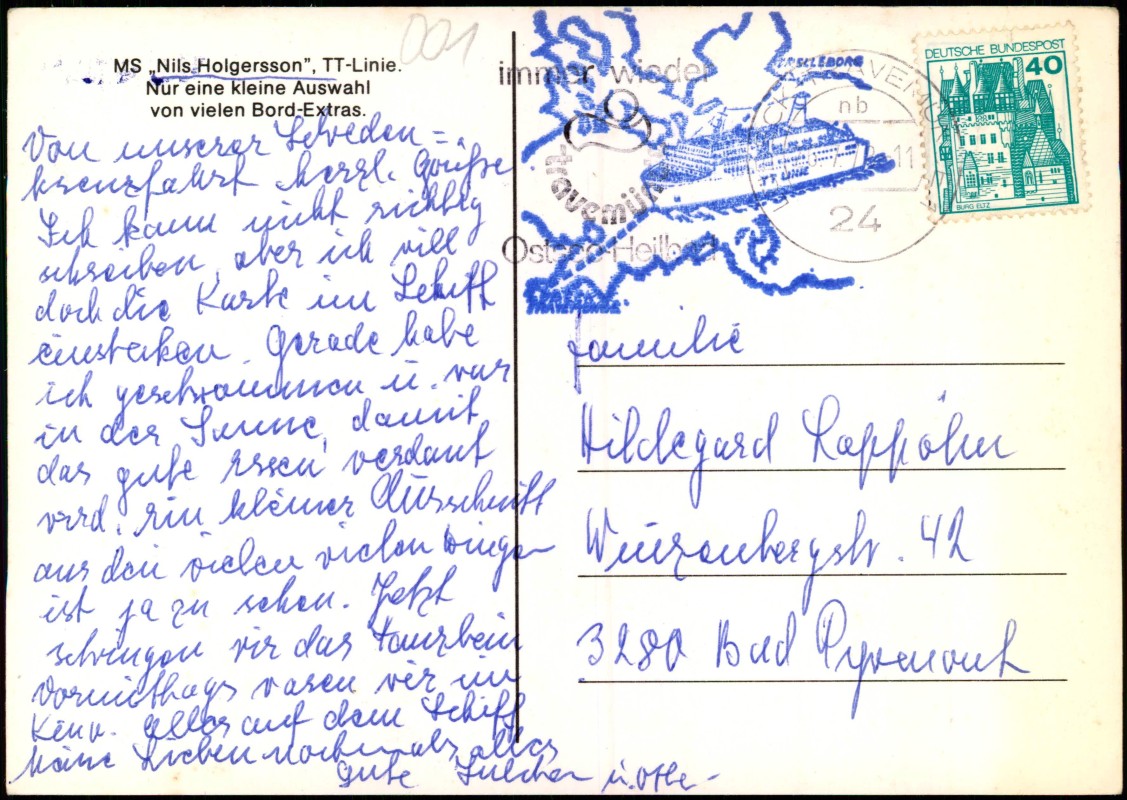 001
MS „Nils Holgersson", TT-Linie.
Nur eine kleine Auswahl
von vielen Bord-Extras.
Von unserer Schweden-
kreuzfahrt herzl. Grüße
Ich kann nicht richtig
schreiben, aber ich will
doch die Karte im Schiff
einstecken. Gerade habe
ich geschwommen u. war
in der Sonne, damit
das gute Essen verdaut
wird. Ein kleiner Ausschnitt
aus den vielen vielen Dingen
ist ja zu sehen. Jetzt
schwingen wir das Tanzbein
Vormittags waren wir im
Kino. Alles auf dem Schiff
Meine Lieben nochmals alles
Gute Julchen u. Otto -
immer wieder
travemünde
Ostsee-Heilbad
TRELLEBORG
TT LINIE
TRAVEMÜNDE
nb
11
24
DEUTSCHE BUNDESPOST
40
BURG ELTZ
Familie
Hildegard
Winzenbergstr. 42
3280 Bad Pyrmont